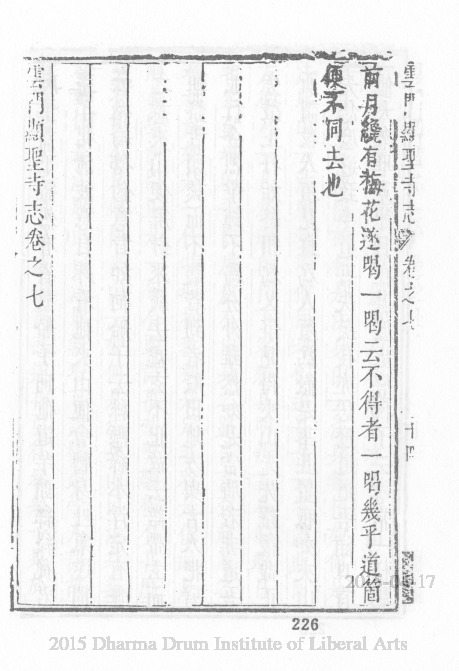 雲門顯聖寺志 卷之七 十四
前月纔有梅花遂喝一喝云不得者一喝幾乎道箇
便不同去也
雲門顯聖寺志卷之七
226
2015 Dharma Drum Institute of Liberal Arts